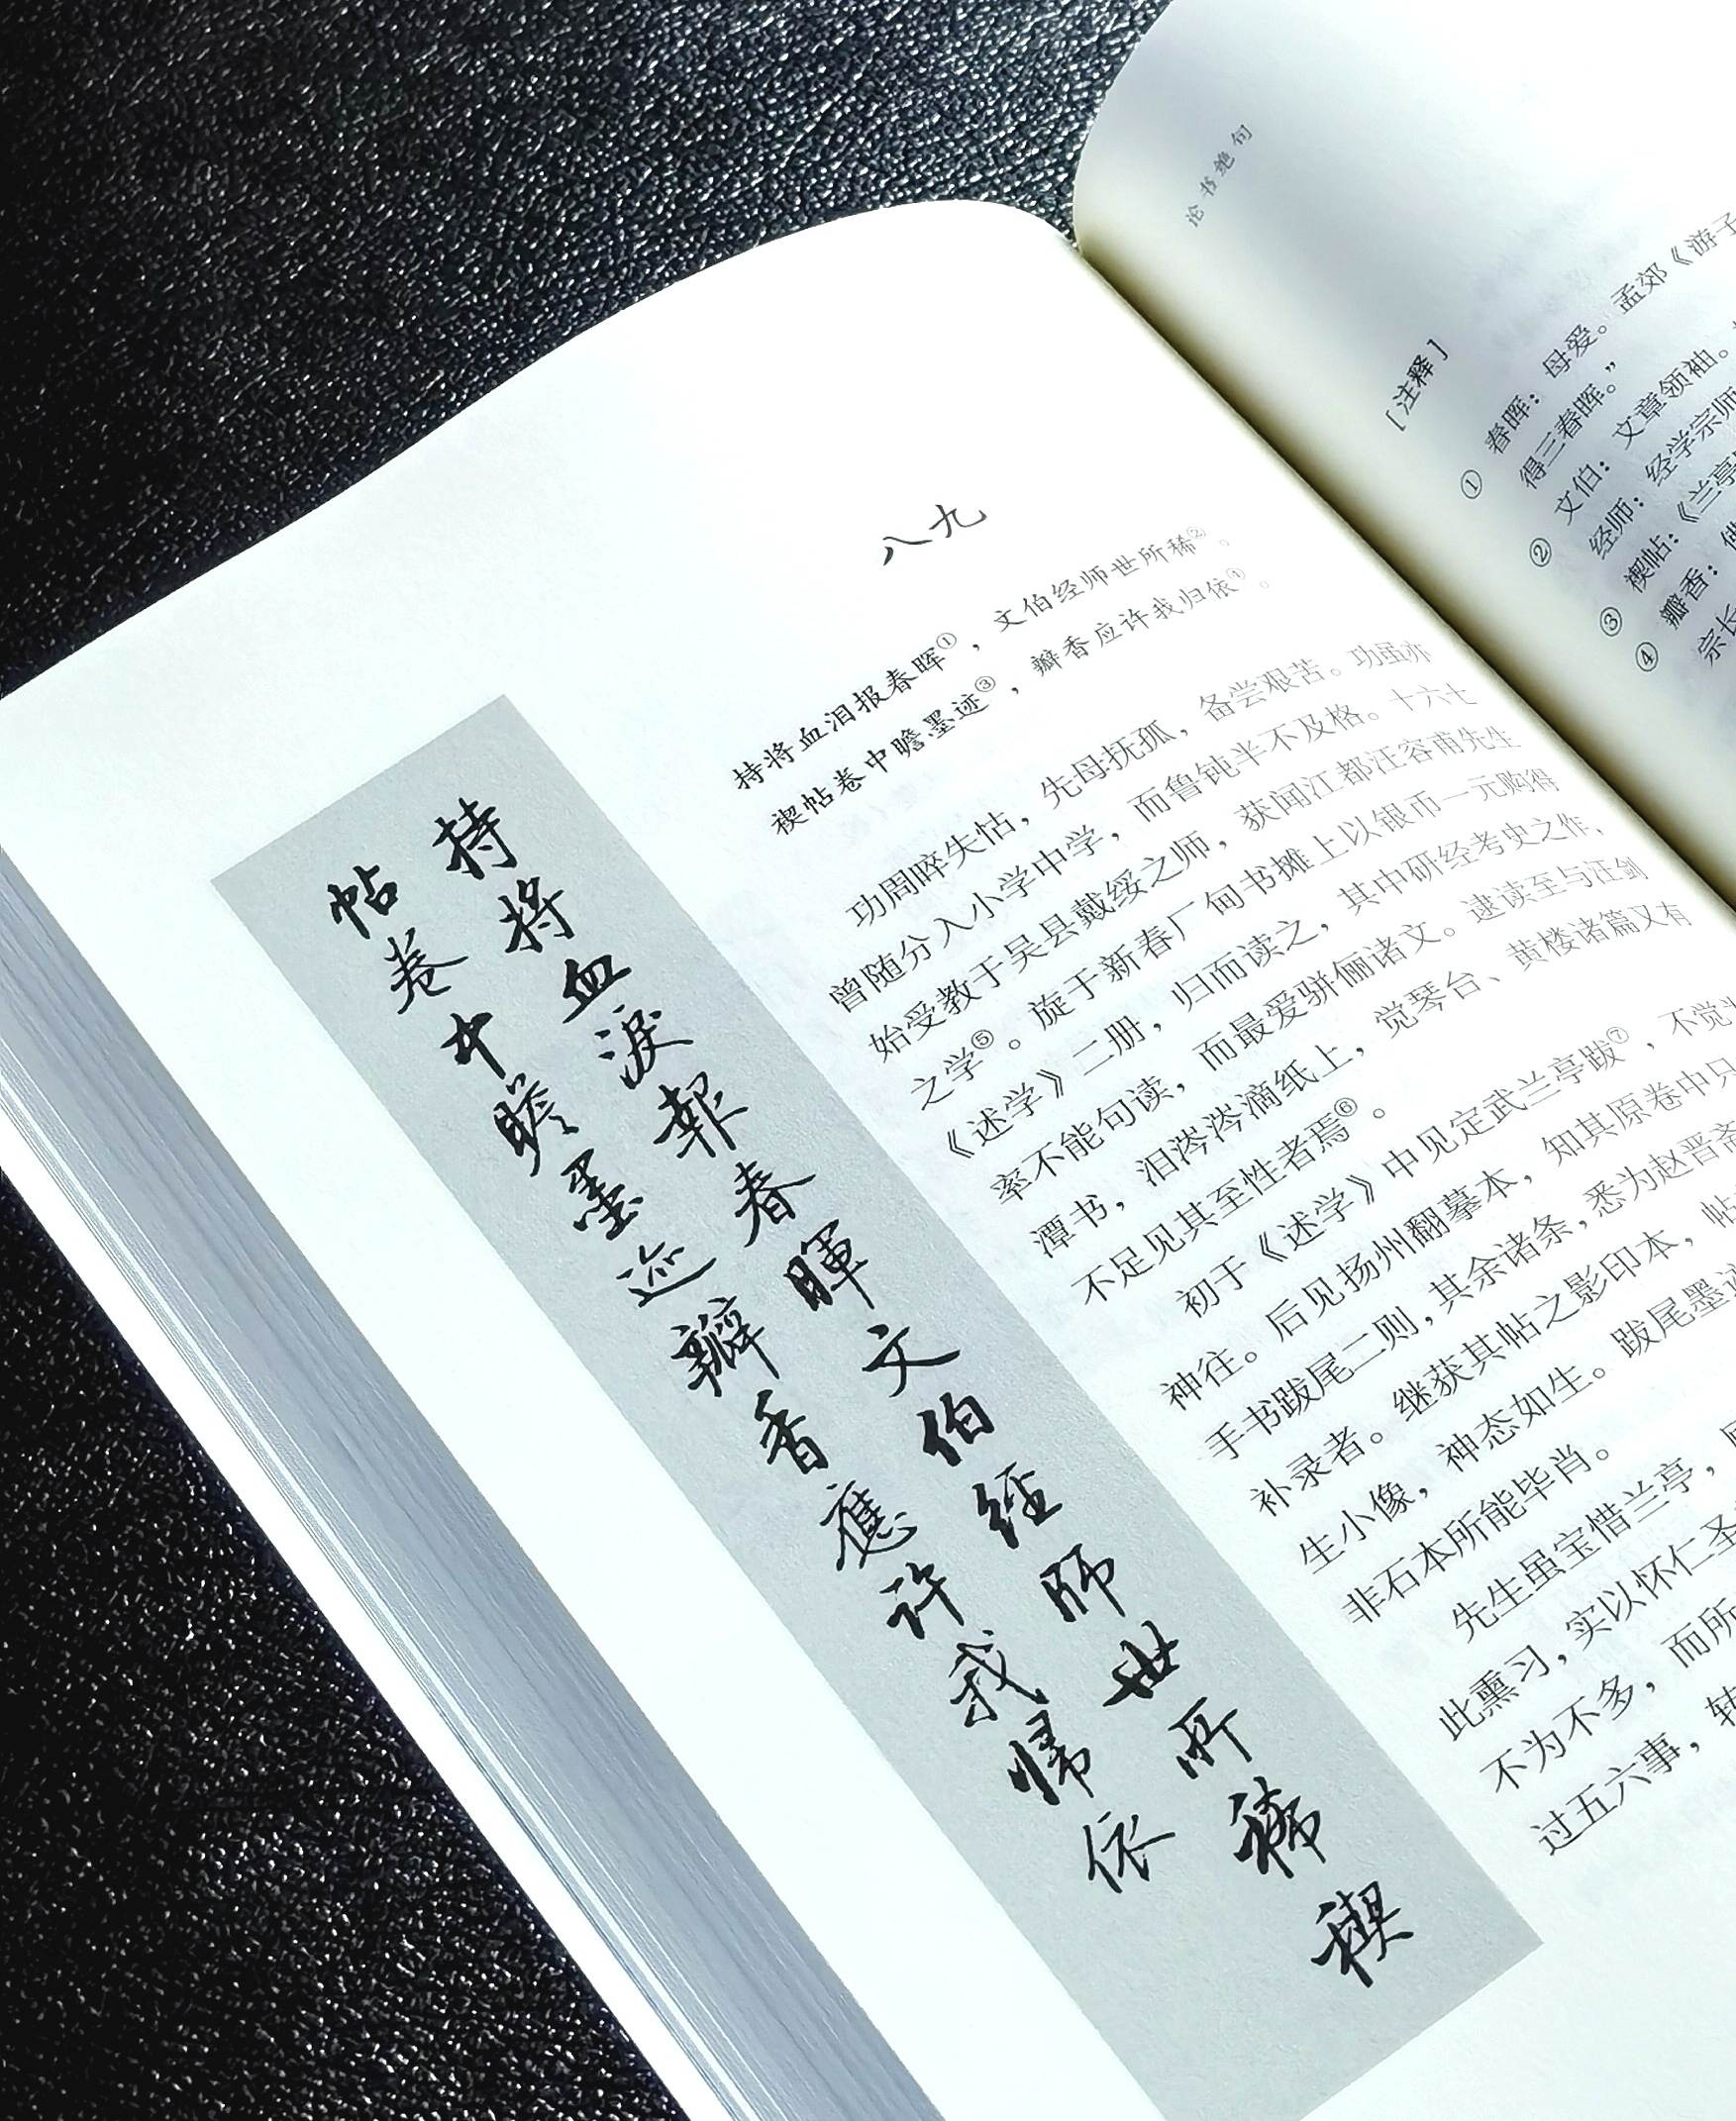 八九
持将血泪报春晖①，文伯经师世所稀②。
禊帖卷中瞻墨迹③，瓣香应许我归依④。
功周晬失怙，先母抚孤，备尝艰苦。功虽亦
曾随分入小学中学，而鲁钝半不及格。十六七
始受教于吴县戴绥之师，获闻江都汪容甫先生
之学⑤。旋于新春厂甸书摊上以银币一元购得
《述学》二册，归而读之，其中研经考史之作，
率不能句读，而最爱骈俪诸文。逮读至与汪剑
潭书，泪涔涔滴纸上，觉琴台、黄楼诸篇又有
不足见其至性者焉⑥。
初于《述学》中见定武兰亭跋⑦，不觉
神往。后见扬州翻摹本，知其原卷中只
手书跋尾二则，其余诸条，悉为赵晋斋
补录者。继获其帖之影印本，帖
生小像，神态如生。跋尾墨迹
非石本所能毕肖。
先生虽宝惜兰亭，
此熏习，实以怀仁圣
不为不多，而所
过五六事，转
持将血淚報春暉文伯经師世所稀禊
帖卷中瞻墨迹瓣香應许我歸依
论书绝句
[注释]
① 春晖：母爱。孟郊《游子
得三春晖。”
② 文伯：文章领袖。
经师：经学宗师
③ 禊帖：《兰亭
④ 瓣香：
宗长